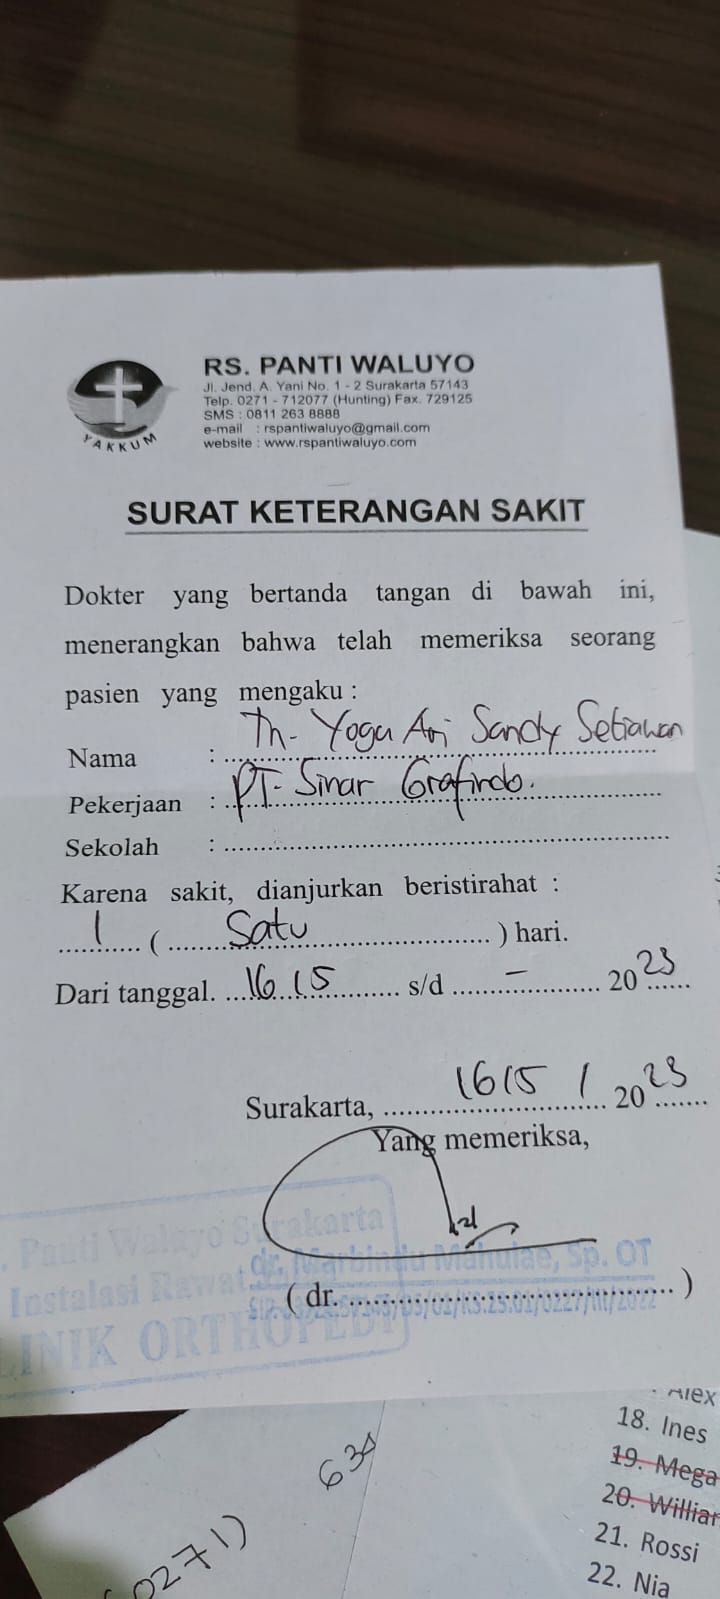 YAKKUM
RS. PANTI WALUYO
Jl. Jend. A. Yani No. 1 - 2 Surakarta 57143
Telp. 0271 - 712077 (Hunting) Fax. 729125
SMS : 0811 263 8888
e-mail : rspantiwaluyo@gmail.com
website : www.rspantiwaluyo.com
SURAT KETERANGAN SAKIT
Dokter yang bertanda tangan di bawah ini,
menerangkan bahwa telah memeriksa seorang
pasien yang mengaku :
Nama : Th. Yoga Ari Sandy Setiawan
Pekerjaan : PT. Sinar Grafindo.
Sekolah :
Karena sakit, dianjurkan beristirahat :
1 ( Satu ) hari.
Dari tanggal. 16/5 s/d - 2023
Surakarta, 16/5 / 2023
Yang memeriksa,
. Panti Waluyo Surakarta
Instalasi Rawat
LINIK ORTHOPEDI
Mahulae, Sp. OT
( dr. )
Alex
18. Ines
19. Mega
20. Willian
21. Rossi
22. Nia
634
0271)